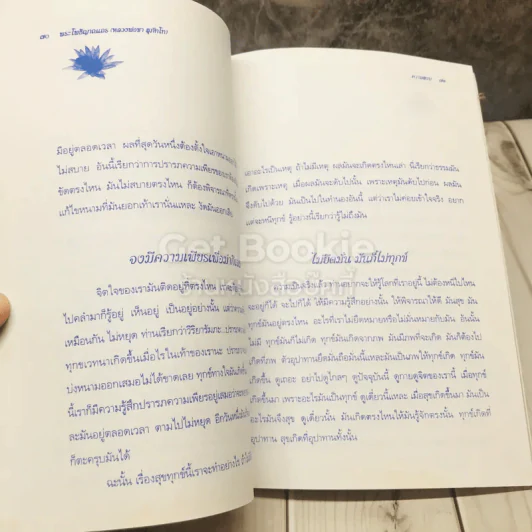 ๗๐ พระโพธิญาณเถร (หลวงพ่อชา สุภัทโท)
มีอยู่ตลอดเวลา ผลที่สุดวันหนึ่งต้องตั้งใจเอาหนาม
ไม่สบาย อันนี้เรียกว่าการปรารภความเพียรของเรา
ขัดตรงไหน มันไม่สบายตรงไหน ก็ต้องพิจารณาที่
แก้ไขหนามที่มันยอกเท้าเรานั่นแหละ งัดมันออกเสีย
จงมีความเพียรเพื่อ
จิตใจของเรามันติดอยู่ที่ตรงไหน เราจะ
ไปคลำมาก็รู้อยู่ เห็นอยู่ เป็นอยู่อย่างนั้น แต่
เหมือนกัน ไม่หยุด ท่านเรียกว่าวิริยารัมภะ ปรารภ
ทุกขเวทนาเกิดขึ้นเมื่อไรในเท้าของเรานะ ปรารภ
บ่งหนามออกเสมอไม่ได้ขาดเลย ทุกข์ทางใจมันเกิด
นี้เราก็มีความรู้สึกปรารภความเพียรอยู่เสมอว่าจะ
ละมันอยู่ตลอดเวลา ตามไปไม่หยุด อีกวันหนึ่งมัน
ก็ตะครุบมันได้
ฉะนั้น เรื่องสุขทุกข์นี้เราจะทำอย่างไร ถ้า
ความสงบ
เอาอะไรเป็นเหตุ ถ้าไม่มีเหตุ ผลมันจะเกิดตรงไหนเล่า นี่เรียกว่าธรรมมัน
เกิดเพราะเหตุ เมื่อผลมันจะดับไปนั้น เพราะเหตุมันดับไปก่อน ผลมัน
จึงดับไปด้วย มันเป็นไปในทำนองอันนี้ แต่ว่าเราไม่ค่อยเข้าใจจริง อยาก
แต่จะหนีทุกข์ รู้อย่างนี้เรียกว่ารู้ไม่ถึงมัน
ไม่ยึดมั่น มันก็ไม่ทุกข์
ความเป็นจริงนั้นท่านอยากจะให้รู้โลกที่เราอยู่นี้ ไม่ต้องหนีไปไหน
จะอยู่ก็ได้ จะไปก็ได้ ให้มีความรู้สึกอย่างนั้น ให้พิจารณาให้ดี มันสุข มัน
ทุกข์มันอยู่ตรงไหน อะไรที่เราไม่ยึดหมายหรือไม่มั่นหมายกับมัน อันนั้น
ไม่มี ทุกข์มันก็ไม่เกิด ทุกข์มันเกิดจากภพ มันมีภพที่จะเกิด มันก็ต้องไป
เกิดที่ภพ ตัวอุปาทานยึดมั่นถือมั่นนี้แหละมันเป็นภพให้ทุกข์เกิด ทุกข์มัน
เกิดขึ้น ดูเถอะ อย่าไปดูไกลๆ ดูปัจจุบันนี้ ดูกายดูจิตของเรานี้ เมื่อทุกข์
เกิดขึ้นมา เพราะอะไรมันเป็นทุกข์ ดูเดี๋ยวนี้แหละ เมื่อสุขเกิดขึ้นมา มันเป็น
อะไรมันจึงสุข ดูเดี๋ยวนั้น มันเกิดตรงไหนให้มันรู้จักตรงนั้น ทุกข์เกิดที่
อุปาทาน สุขเกิดที่อุปาทานทั้งนั้น
Get Bookie
ร้านหนังสือบุ๊คกี้